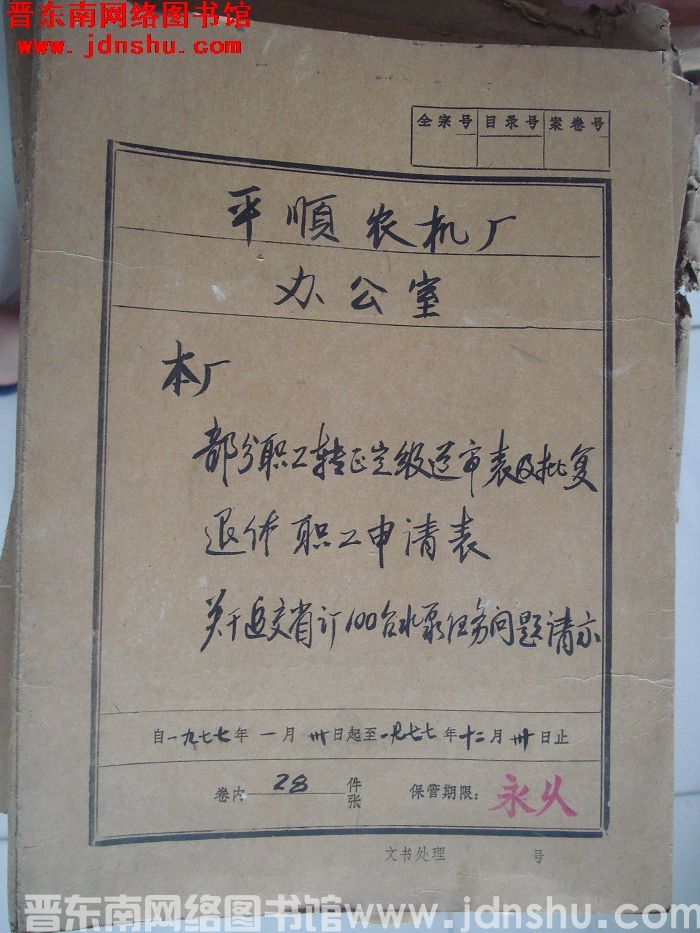 晋东南网络图书馆
www.jdnshu.com
全宗号 目录号 案卷号
平順农机厂
办公室
本厂
部分职工转正定级送审表及批复
退休职工申请表
关于返交省订100台水泵任务问题请示
自一九七七年一月卅日起至一九七七年十二月卅日止
卷内 28 件张 保管期限：永久
文书处理 号
晋东南网络图书馆 www.jdnshu.com